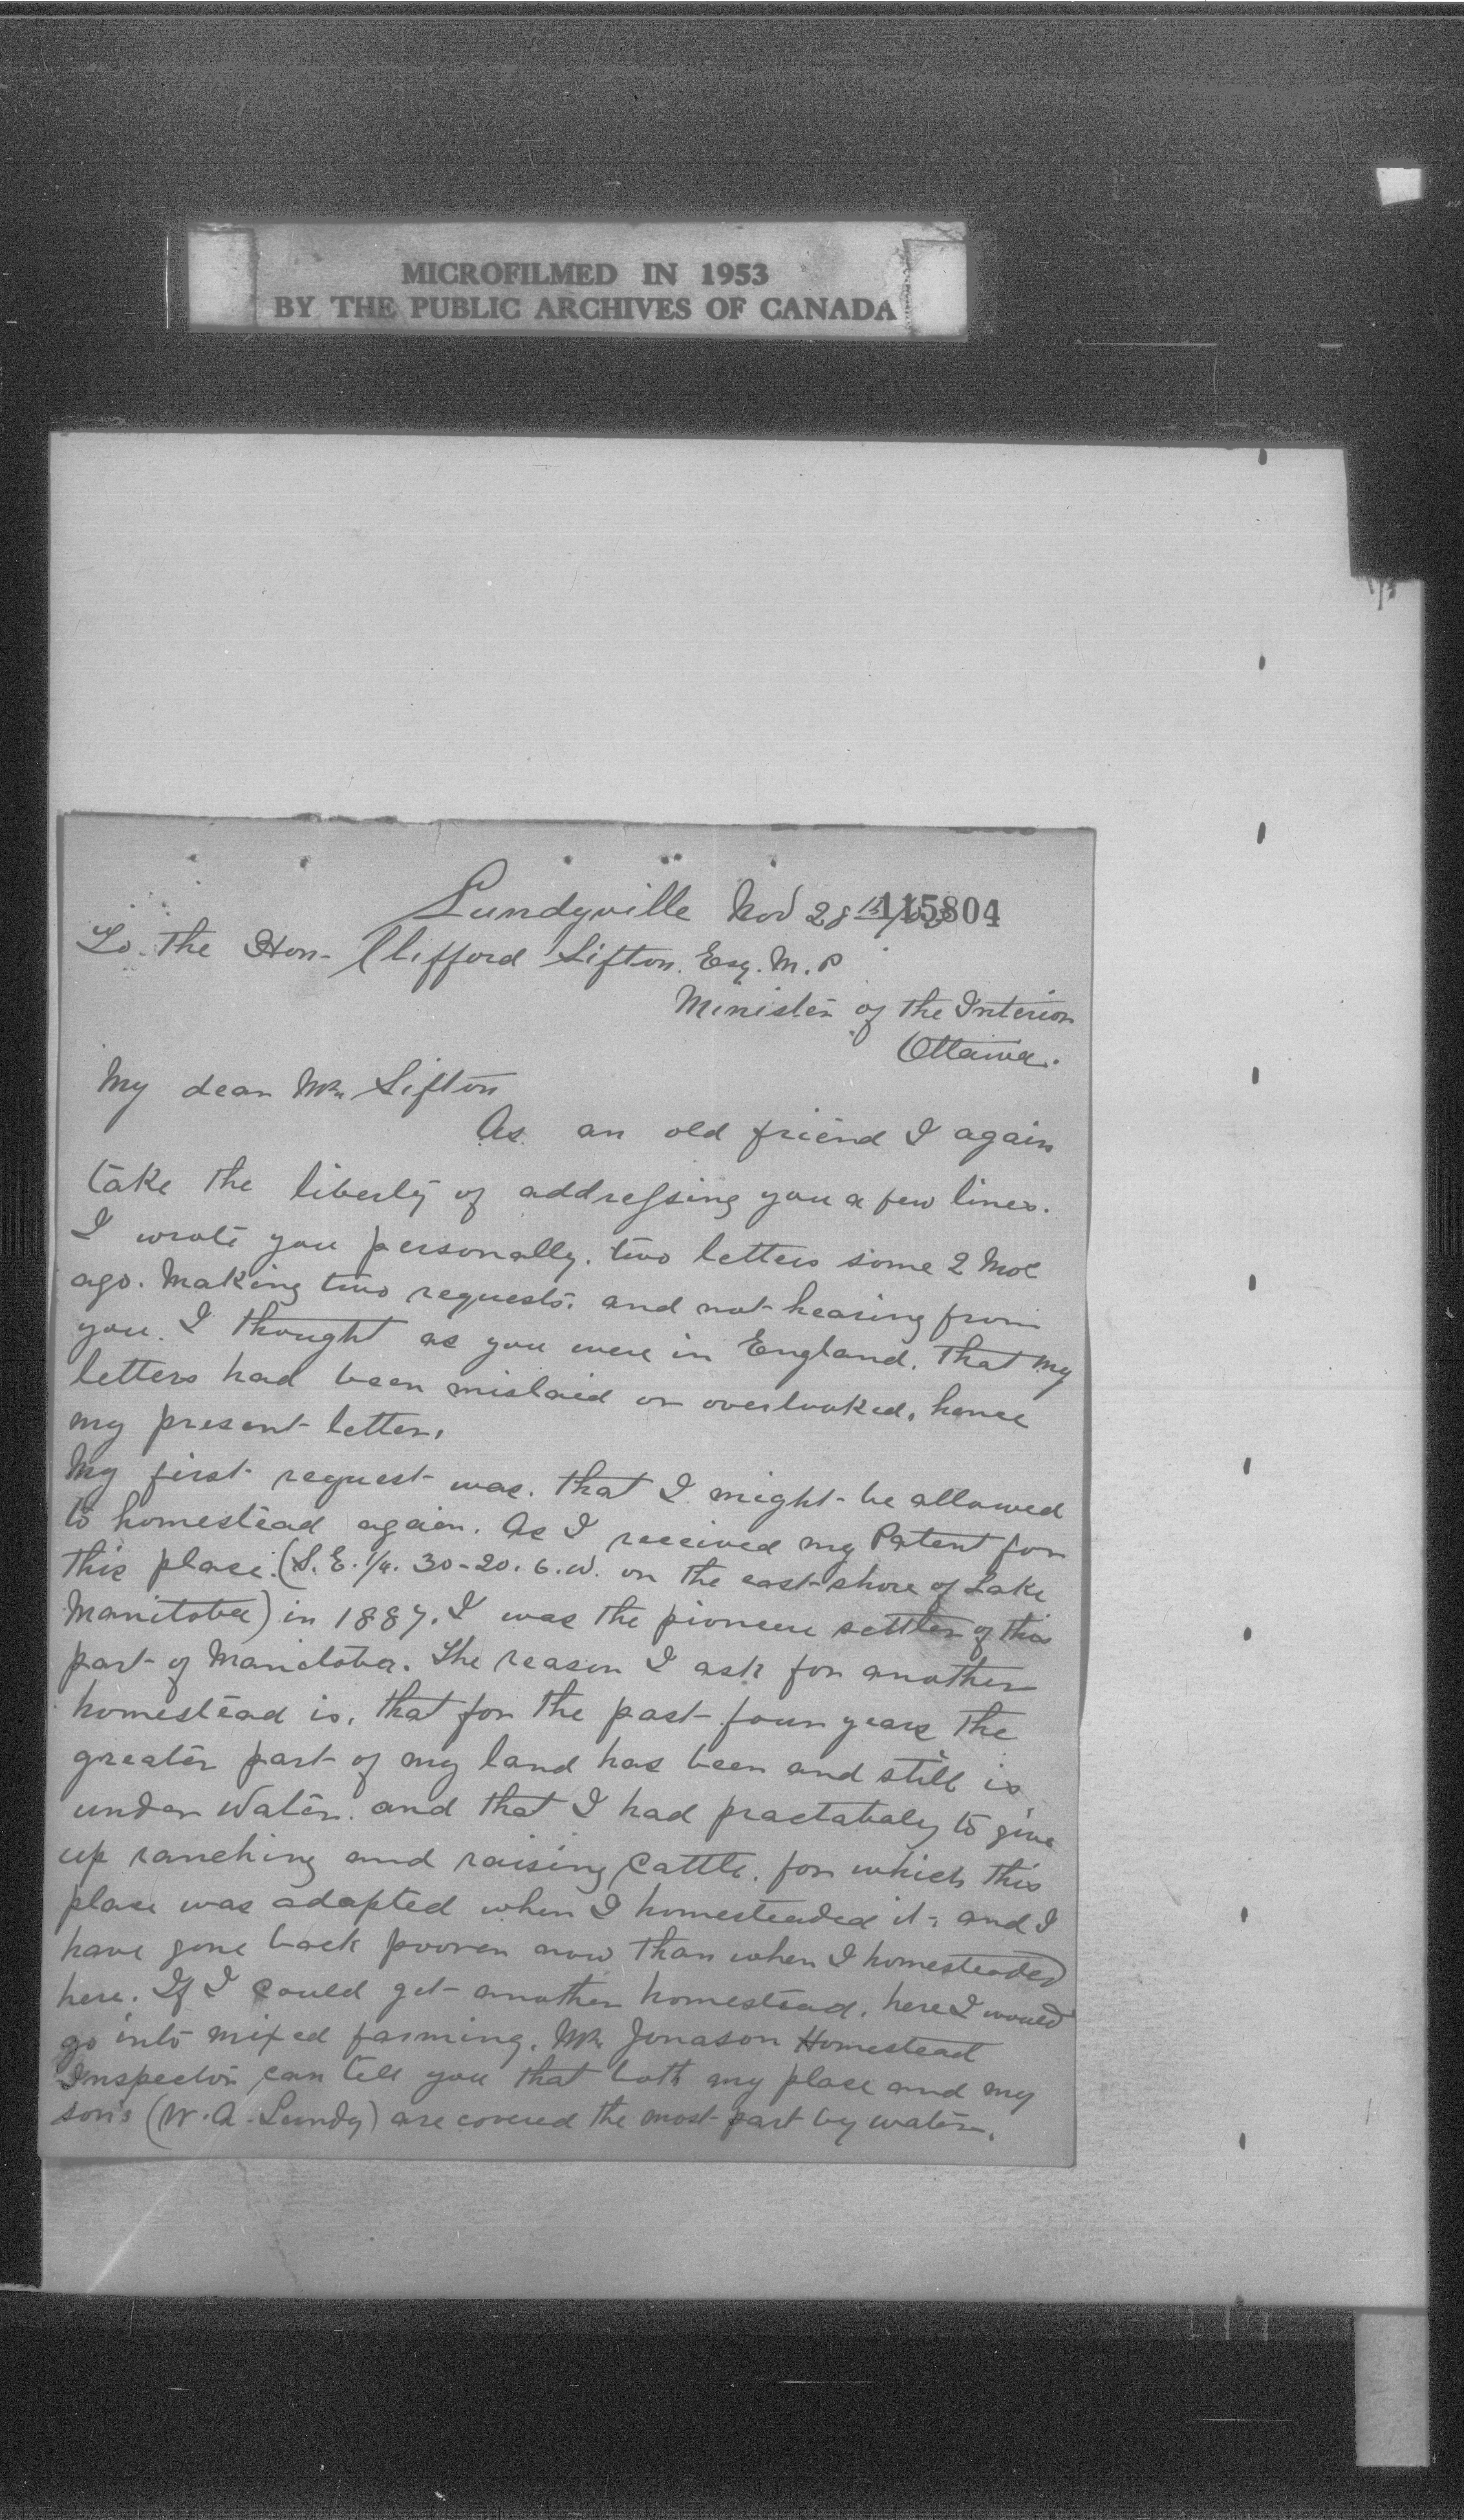 MICROFILMED IN 1953
BY THE PUBLIC ARCHIVES OF CANADA
Lundyville Nov 28th 115804
To The Hon. Clifford Sifton. Esq. M.P
Minister of the Interior
Ottawa.
My dear Mr. Sifton
As an old friend I again
take the liberty of addressing you a few lines.
I wrote you personally. two letters some 2 Mos
ago. Making two requests. and not hearing from
you. I thought as you were in England. That my
letters had been mislaid or overlooked. hence
my present letter.
My first request was. that I might be allowed
to homestead again. As I received my Patent for
this place. (S.E. 1/4. 30-20. 6. W. on the east shore of Lake
Manitoba) in 1887. I was the pioneer settler of this
part of Manitoba. The reason I ask for another
homestead is. that for the past four years the
greater part of my land has been and still is
under Water. and that I had practabaly to give
up ranching and raising Cattle. for which this
place was adapted when I homesteaded it. and I
have gone back poorer now than when I homesteaded
here. If I could get another homestead. here I would
go into mixed farming. Mr. Jonason Homestead
Inspector can tell you that both my place and my
son's (W. A. Lundy) are covered the most part by water.